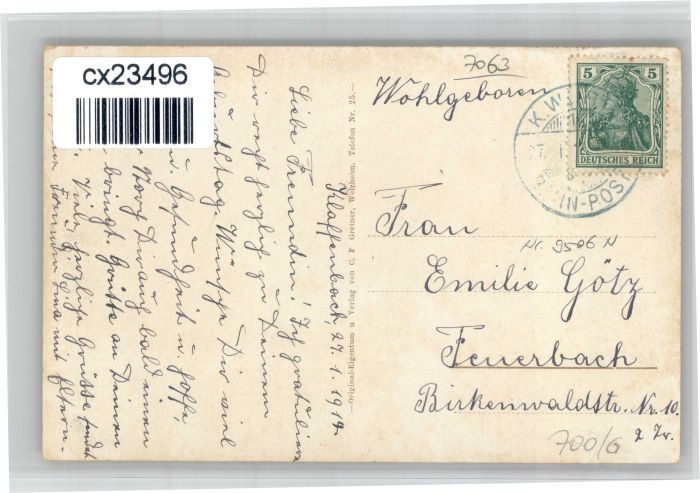 cx23496
7063
Wohlgeboren
5 5
DEUTSCHES REICH
K.W.
27. 1.
IN-POS
Frau
Nr. 9506 N
Emilie Götz
Feuerbach
Birkenwaldstr. Nr. 10.
2 Tr.
700/6
Original-Eigentum u Verlag von C. F Greiner, Welzheim. Telefon Nr. 25.
Klaffenbach 27. 1. 1914
Liebe Freundin! Ich gratuliere
Dir recht herzlich zu Deinem
Geburtstag. Wünsche Dir viel
u. Gesundheit u. hoffe,
Storch Dir auch bald einen
bringt. Grüße an Deinen
Viele herzliche Grüße sendet
Lina mit Eltern.